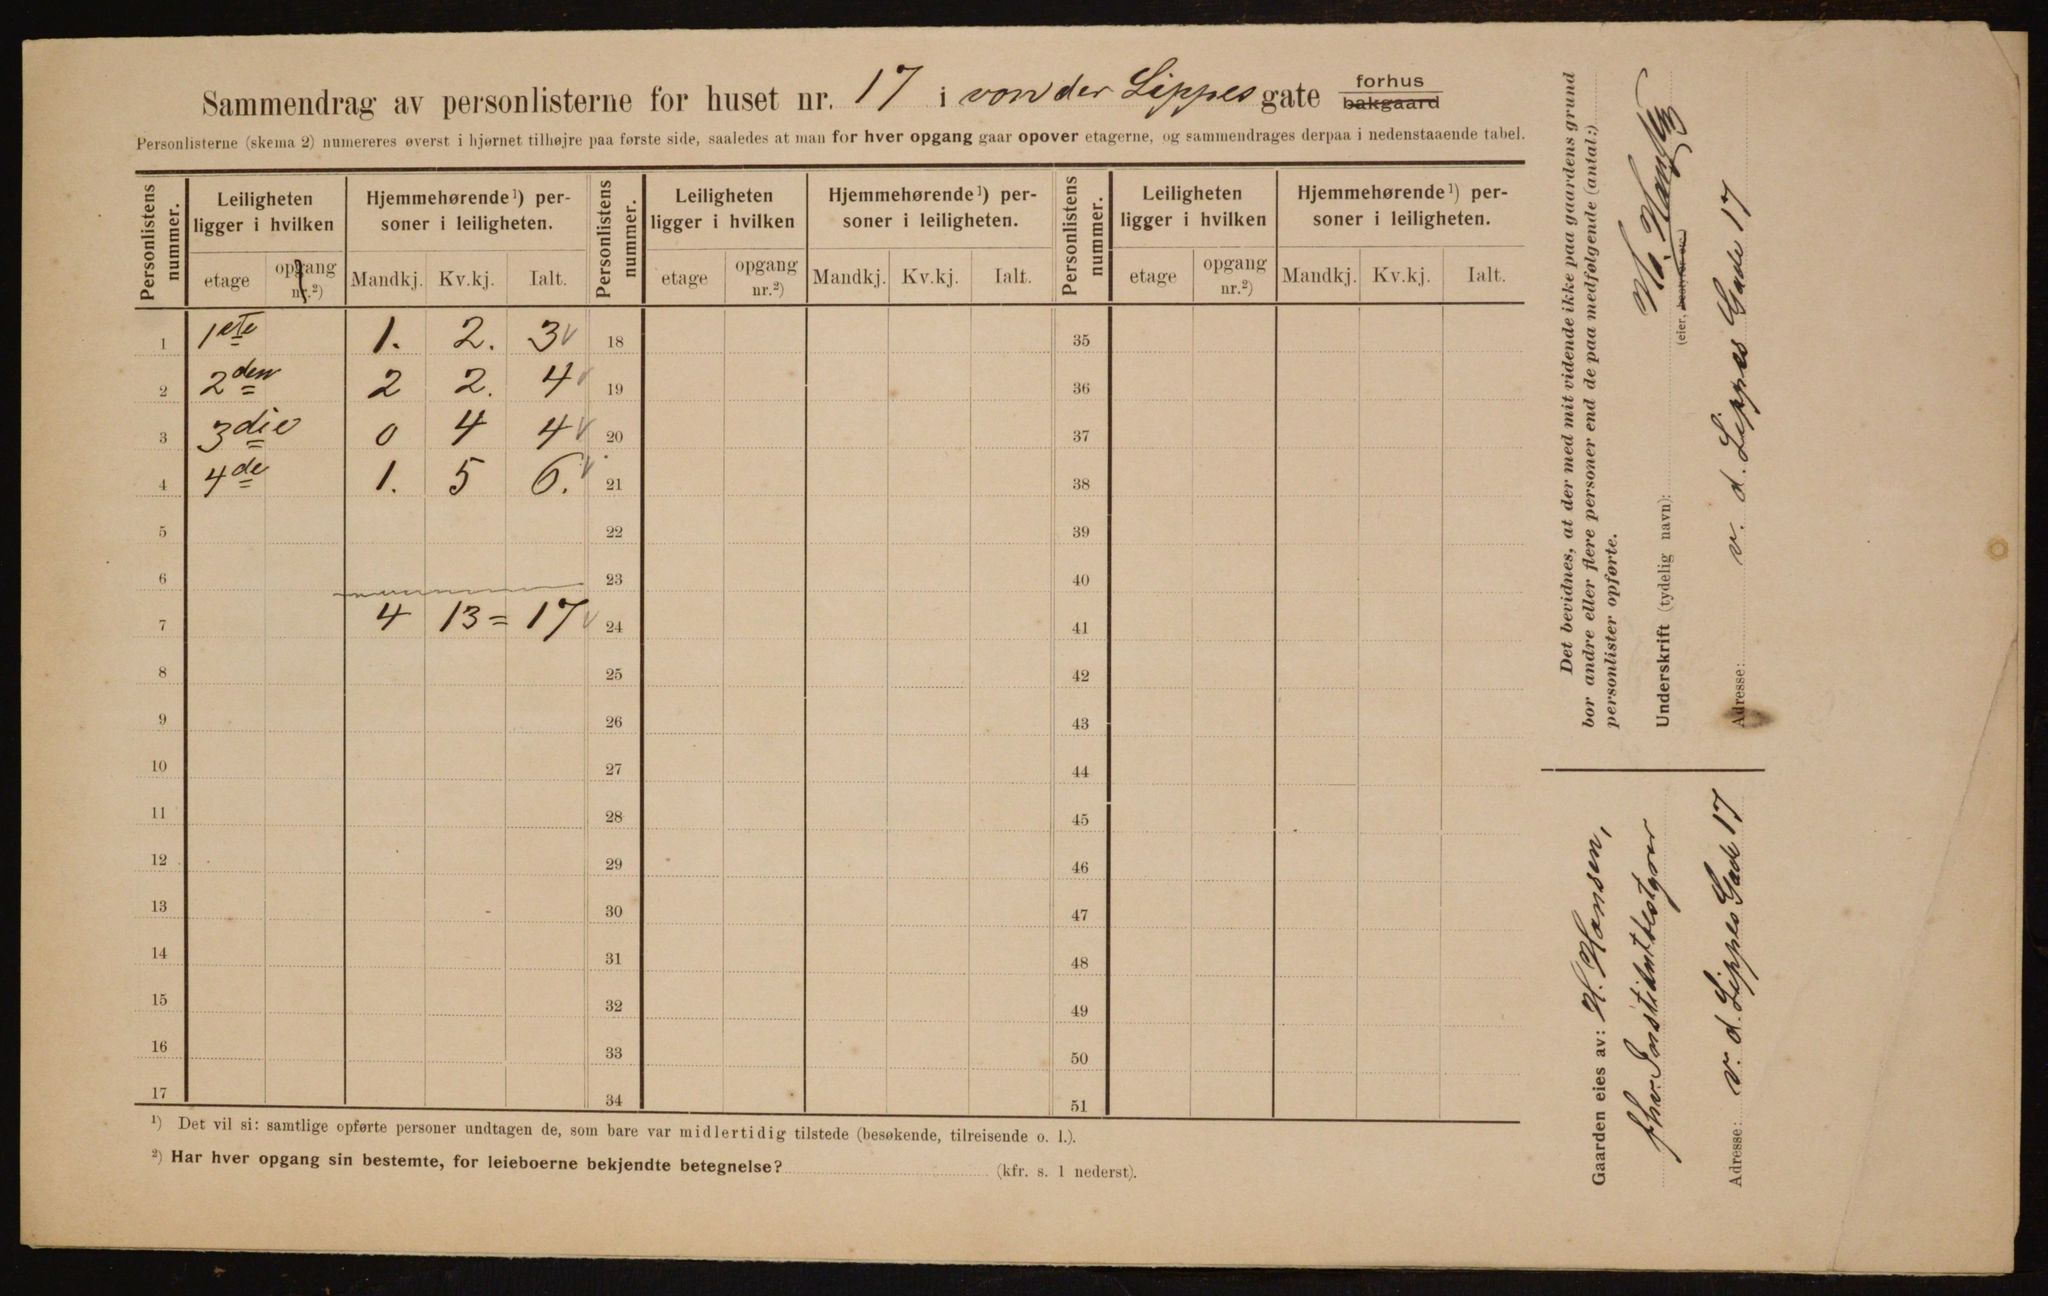 Sammendrag av personlisterne for huset nr. 17 i von der Lippes gate forhus bakgaard
Personlisterne (skema 2) numereres øverst i hjørnet tilhøjre paa første side, saaledes at man for hver opgang gaar opover etagerne, og sammendrages derpaa i nedenstaaende tabel.
Personlistens nummer. Leiligheten ligger i hvilken Hjemmehørende¹) personer i leiligheten. Personlistens nummer. Leiligheten ligger i hvilken Hjemmehørende¹) personer i leiligheten. Personlistens nummer. Leiligheten ligger i hvilken Hjemmehørende¹) personer i leiligheten.
etage opgang nr.²) Mandkj. Kv.kj. Ialt. etage opgang nr.²) Mandkj. Kv.kj. Ialt. etage opgang nr.²) Mandkj. Kv.kj. Ialt.
1 1ste 1. 2. 3 18 35
2 2den 2 2. 4 19 36
3 3die 0 4 4 20 37
4 4de 1. 5 6. 21 38
5 22 39
6 23 40
7 4 13 = 17 24 41
8 25 42
9 26 43
10 27 44
11 28 45
12 29 46
13 30 47
14 31 48
15 32 49
16 33 50
17 34 51
¹) Det vil si: samtlige opførte personer undtagen de, som bare var midlertidig tilstede (besøkende, tilreisende o. l.).
²) Har hver opgang sin bestemte, for leieboerne bekjendte betegnelse? (kfr. s. 1 nederst).
Det bevidnes, at der med mit vidende ikke paa gaardens grund
bor andre eller flere personer end de paa medfølgende (antal:)
personlister opførte.
Underskrift (tydelig navn):
(eier,
Adresse: v. d. Lippes Gade 17
Gaarden eies av: H. Hansen,
fhv. Institutbestyrer
Adresse: v. d. Lippes Gade 17